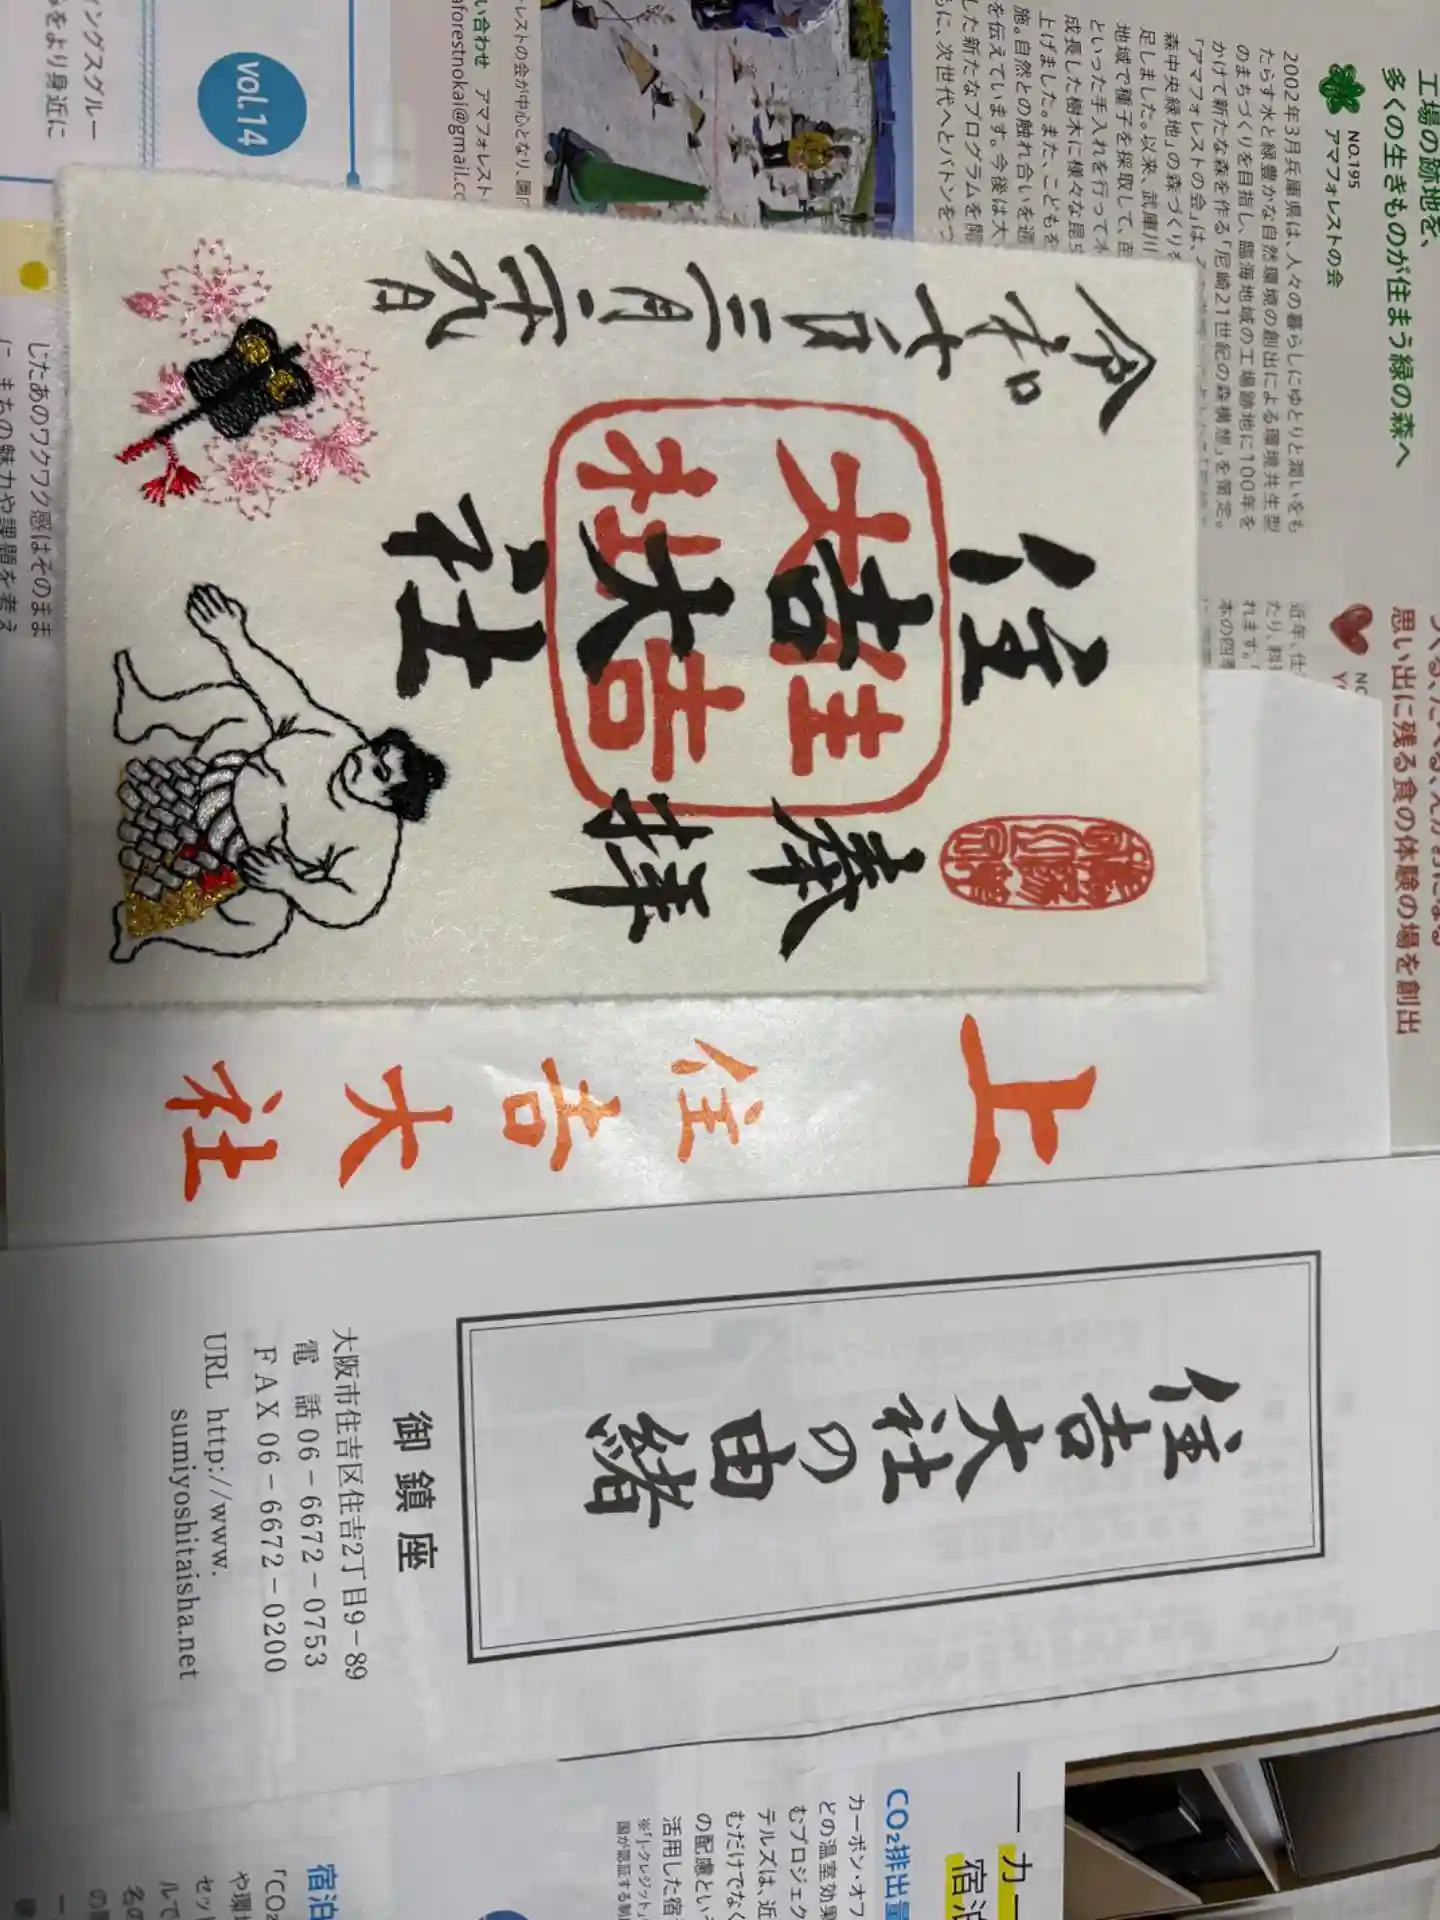 工場の跡地を、
多くの生きものが住まう緑の森へ
NO.195
アマフォレストの会
2002年3月兵庫県は、人々の暮らしにゆとりと潤いをも
たらす水と緑豊かな自然環境の創出による環境共生型
のまちづくりを目指し、臨海地域の工場跡地に100年を
かけて新たな森を作る「尼崎21世紀の森構想」を策定。
「アマフォレストの会」は、
森中央緑地」の森づくりを
足しました。以来、武庫川
地域で種子を採取して、苗
といった手入れを行って木
成長した樹木に様々な昆
上げました。また、こどもを
施。自然との触れ合いを通
を伝えています。今後は大
した新たなプログラムを開
に、次世代へとバトンをつ
い合わせ アマフォレスト
aforestnokai@gmail.co
レストの会が中心となり、園
vol.14
ィングスグルー
をより身近に
じたあのワクワク感はそのまま
に まちの魅力や課題を考え
思い出に残る食の体験の場を創出
近年、仕
たり、料
れます。
本の四季
奉拝
住吉大社
住吉大社
令和七年三月二十九日
上
住吉大社
住吉大社の由緒
御鎮座
大阪市住吉区住吉2丁目9−89
電 話 06−6672−0753
FAX 06−6672−0200
URL http://www.
sumiyoshitaisha.net
カー
宿泊
CO₂排出量
カーボン・オフ
どの温室効果
むプロジェク
テルズは、近
むだけでなく
の配慮とい
活用した宿
※「J-クレジット」
国が認証する制
宿泊
「CO₂
や環境
セッ
ルで
名の